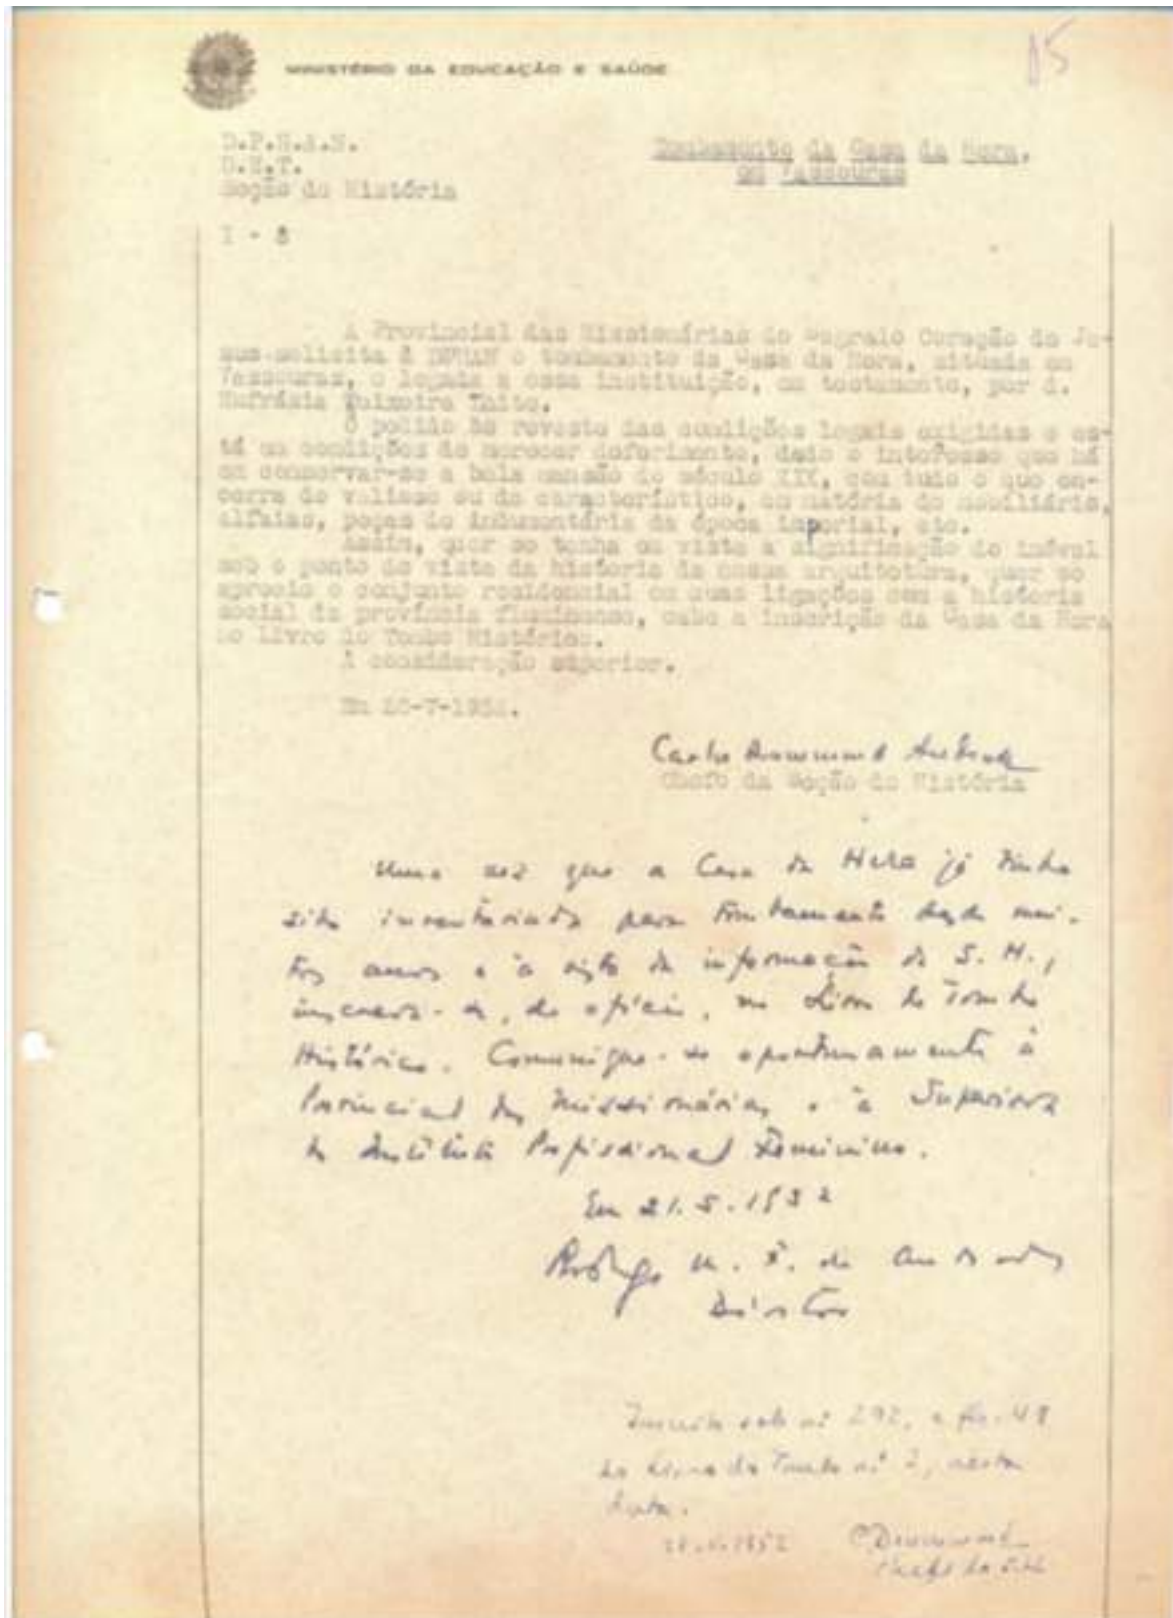 15
MINISTÉRIO DA EDUCAÇÃO E SAÚDE
D.P.H.A.N.
D.E.T.
Seção de História
Tombamento da Casa da Hera,
em Vassouras
I -
A Provincial das Missionárias do Sagrado Coração de Je-
sus solicita à DPHAN o tombamento da Casa da Hera, situada em
Vassouras, e legada a essa instituição, em testamento, por d.
Eufrásia Teixeira Leite.
O pedido se reveste das condições legais exigidas e es-
tá em condições de merecer deferimento, dado o interesse que há
em conservar-se a bela mansão do século XIX, com tudo o que en-
cerra de valioso ou de característico, em matéria de mobiliário,
alfaias, peças de indumentária da época imperial, etc.
Assim, quer se tenha em vista a significação do imóvel
sob o ponto de vista da historia da nossa arquitetura, quer se
aprecie o conjunto residencial em suas ligações com a historia
social da província fluminense, cabe a inscrição da Casa da Hera
no Livro do Tombo Histórico.
À consideração superior.
Em
Carlos Drummond Andrade
Chefe da Seção de História
Uma vez que a Casa da Hera já tinha
sido inventariada para tombamento desde mui-
tos anos e à vista da informação da S. H.,
inscreva-se, de ofício, no Livro do Tombo
Histórico. Comunique-se oportunamente à
Provincial das Missionárias e à Superiora
do Instituto Profissional Feminino.
Em 21.5.1952
Rodrigo M. F. de Andrade
Diretor
Inscrita sob nº 292, a fls. 48
do Livro do Tombo nº 2, nesta
data.
1952 CDrummond
Chefe da